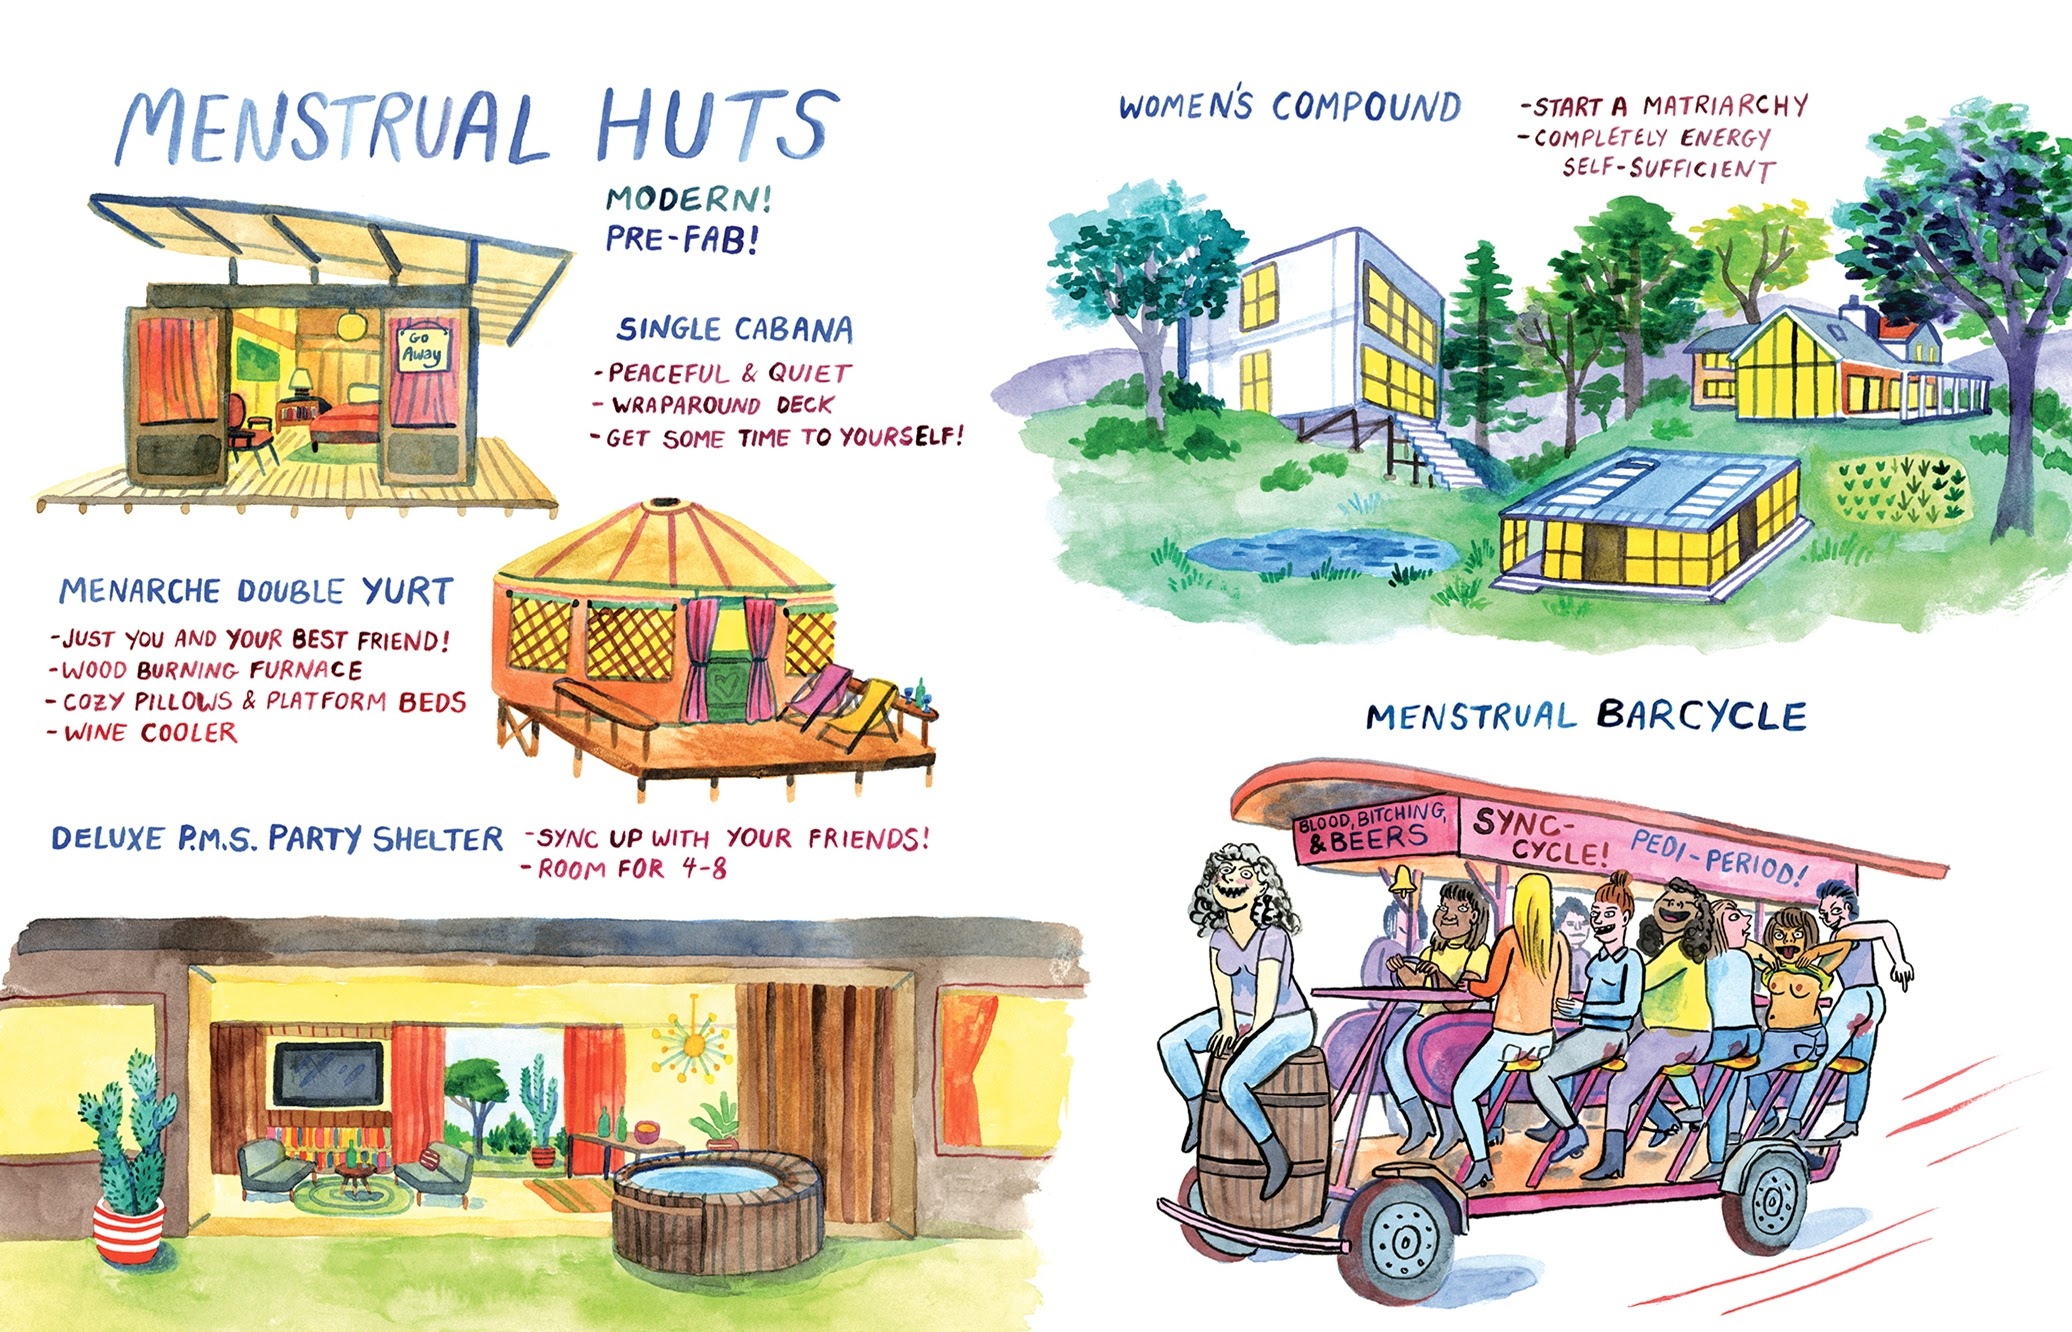 MENSTRUAL HUTS
MODERN!
PRE-FAB!
GO
AWAY
SINGLE CABANA
-PEACEFUL & QUIET
- WRAPAROUND DECK
-GET SOME TIME TO YOURSELF!
MENARCHE DOUBLE YURT
-JUST YOU AND YOUR BEST FRIEND!
-WOOD BURNING FURNACE
- COZY PILLOWS & PLATFORM BEDS
- WINE COOLER
DELUXE P.M.S. PARTY SHELTER
-SYNC UP WITH YOUR FRIENDS!
-ROOM FOR 4-8
WOMEN'S COMPOUND
-START A MATRIARCHY
-COMPLETELY ENERGY
SELF-SUFFICIENT
MENSTRUAL BARCYCLE
BLOOD, BITCHING,
& BEERS
SYNC-
CYCLE!
PEDI-PERIOD!